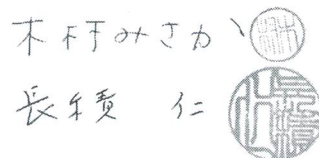 木村みさか
長積 仁